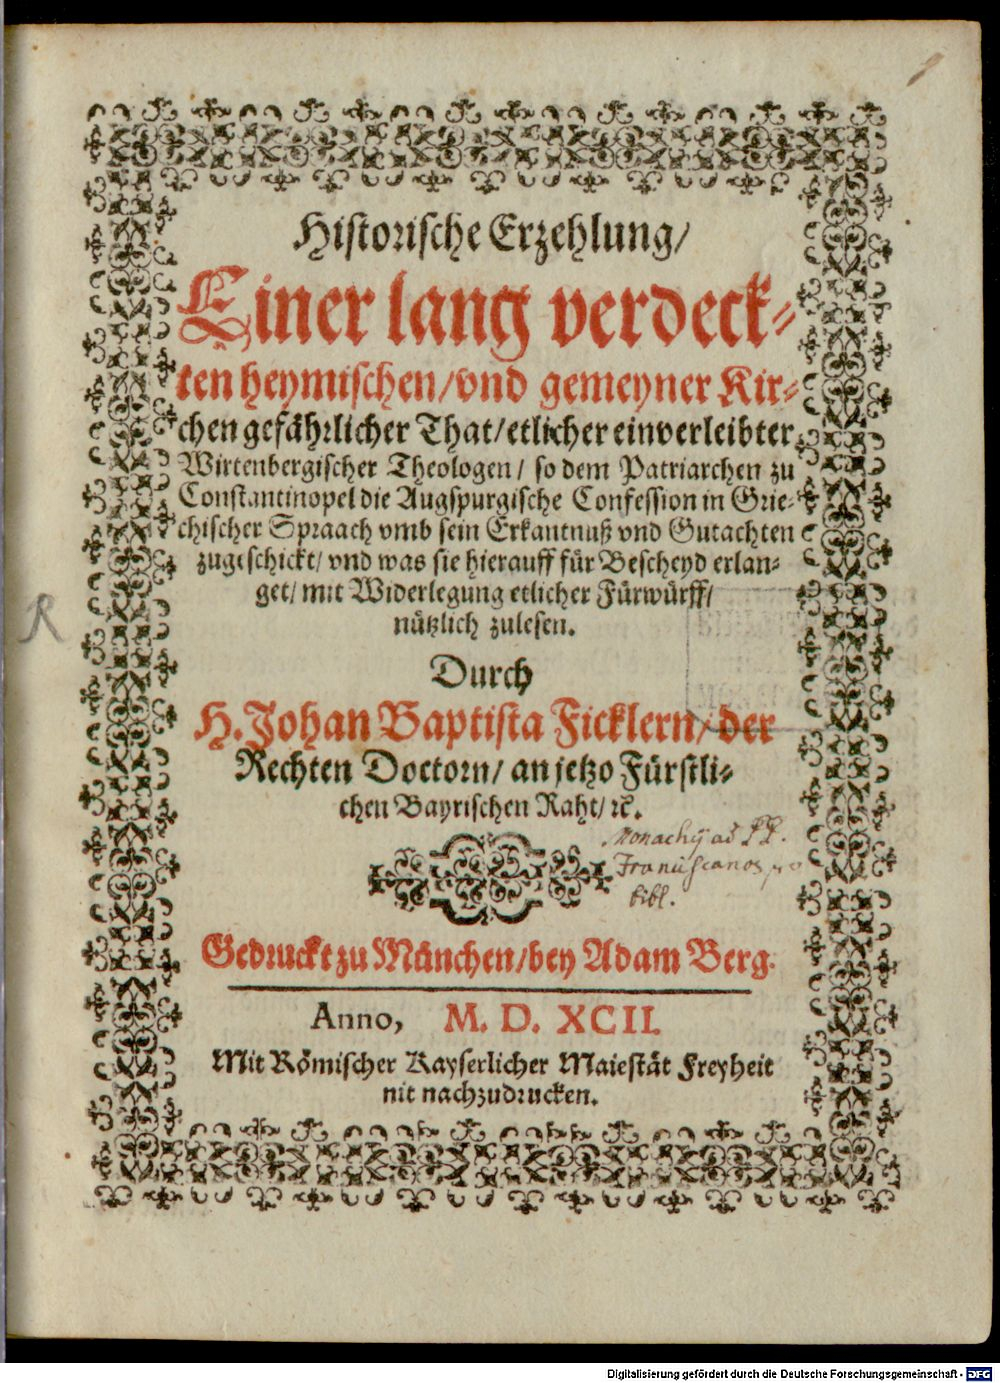 Historische Erzehlung/
Einer lang verdeck-
ten heymischen/vnd gemeyner Kir-
chen gefährlicher That/etlicher einverleibter
Wirtenbergischer Theologen/ so dem Patriarchen zu
Constantinopel die Augspurgische Confession in Grie-
chischer Spraach vmb sein Erkantnuß vnd Gutachten
zugeschickt/ vnd was sie hierauff für Bescheyd erlan-
get/ mit Widerlegung etlicher Fürwürff/
nützlich zulesen.
Durch
H. Johan Baptista Ficklern/ der
Rechten Doctorn/ an jetzo Fürstli-
chen Bayrischen Raht/ ꝛc.
Monachij ad PP.
Franciscanos pro
bibl.
Gedruckt zu München/bey Adam Berg.
Anno, M. D. XCII.
Mit Römischer Kayserlicher Maiestät Freyheit
nit nachzudrucken.
R
Digitalisierung gefördert durch die Deutsche Forschungsgemeinschaft - DFG